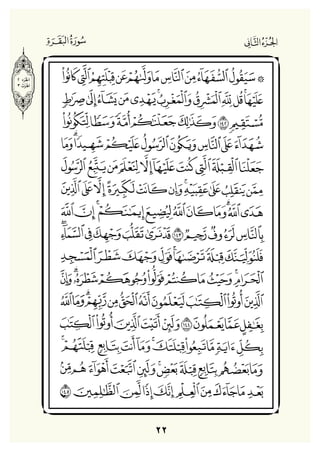 الجُزْءُ الثَّانِي
سُورَةُ البَقَرَةِ
الجزء ٢
الحزب ٣
۞ سَيَقُولُ ٱلسُّفَهَآءُ مِنَ ٱلنَّاسِ مَا وَلَّىٰهُمْ عَن قِبْلَتِهِمُ ٱلَّتِي كَانُوا۟
عَلَيْهَا ۚ قُل لِّلَّهِ ٱلْمَشْرِقُ وَٱلْمَغْرِبُ ۚ يَهْدِي مَن يَشَآءُ إِلَىٰ صِرَٰطٍ
مُّسْتَقِيمٍ ١٤٢ وَكَذَٰلِكَ جَعَلْنَٰكُمْ أُمَّةً وَسَطًا لِّتَكُونُوا۟
شُهَدَآءَ عَلَى ٱلنَّاسِ وَيَكُونَ ٱلرَّسُولُ عَلَيْكُمْ شَهِيدًا ۗ وَمَا
جَعَلْنَا ٱلْقِبْلَةَ ٱلَّتِي كُنتَ عَلَيْهَآ إِلَّا لِنَعْلَمَ مَن يَتَّبِعُ ٱلرَّسُولَ
مِمَّن يَنقَلِبُ عَلَىٰ عَقِبَيْهِ ۚ وَإِن كَانَتْ لَكَبِيرَةً إِلَّا عَلَى ٱلَّذِينَ
هَدَى ٱللَّهُ ۗ وَمَا كَانَ ٱللَّهُ لِيُضِيعَ إِيمَٰنَكُمْ ۚ إِنَّ ٱللَّهَ
بِٱلنَّاسِ لَرَءُوفٌ رَّحِيمٌ ١٤٣ قَدْ نَرَىٰ تَقَلُّبَ وَجْهِكَ فِي ٱلسَّمَآءِ ۖ
فَلَنُوَلِّيَنَّكَ قِبْلَةً تَرْضَىٰهَا ۚ فَوَلِّ وَجْهَكَ شَطْرَ ٱلْمَسْجِدِ
ٱلْحَرَامِ ۚ وَحَيْثُ مَا كُنتُمْ فَوَلُّوا۟ وُجُوهَكُمْ شَطْرَهُۥ ۗ وَإِنَّ
ٱلَّذِينَ أُوتُوا۟ ٱلْكِتَٰبَ لَيَعْلَمُونَ أَنَّهُ ٱلْحَقُّ مِن رَّبِّهِمْ ۗ وَمَا ٱللَّهُ
بِغَٰفِلٍ عَمَّا يَعْمَلُونَ ١٤٤ وَلَئِنْ أَتَيْتَ ٱلَّذِينَ أُوتُوا۟ ٱلْكِتَٰبَ
بِكُلِّ ءَايَةٍ مَّا تَبِعُوا۟ قِبْلَتَكَ ۚ وَمَآ أَنتَ بِتَابِعٍ قِبْلَتَهُمْ ۚ
وَمَا بَعْضُهُم بِتَابِعٍ قِبْلَةَ بَعْضٍ ۚ وَلَئِنِ ٱتَّبَعْتَ أَهْوَآءَهُم مِّنۢ
بَعْدِ مَا جَآءَكَ مِنَ ٱلْعِلْمِ ۙ إِنَّكَ إِذًا لَّمِنَ ٱلظَّٰلِمِينَ ١٤٥
٢٢